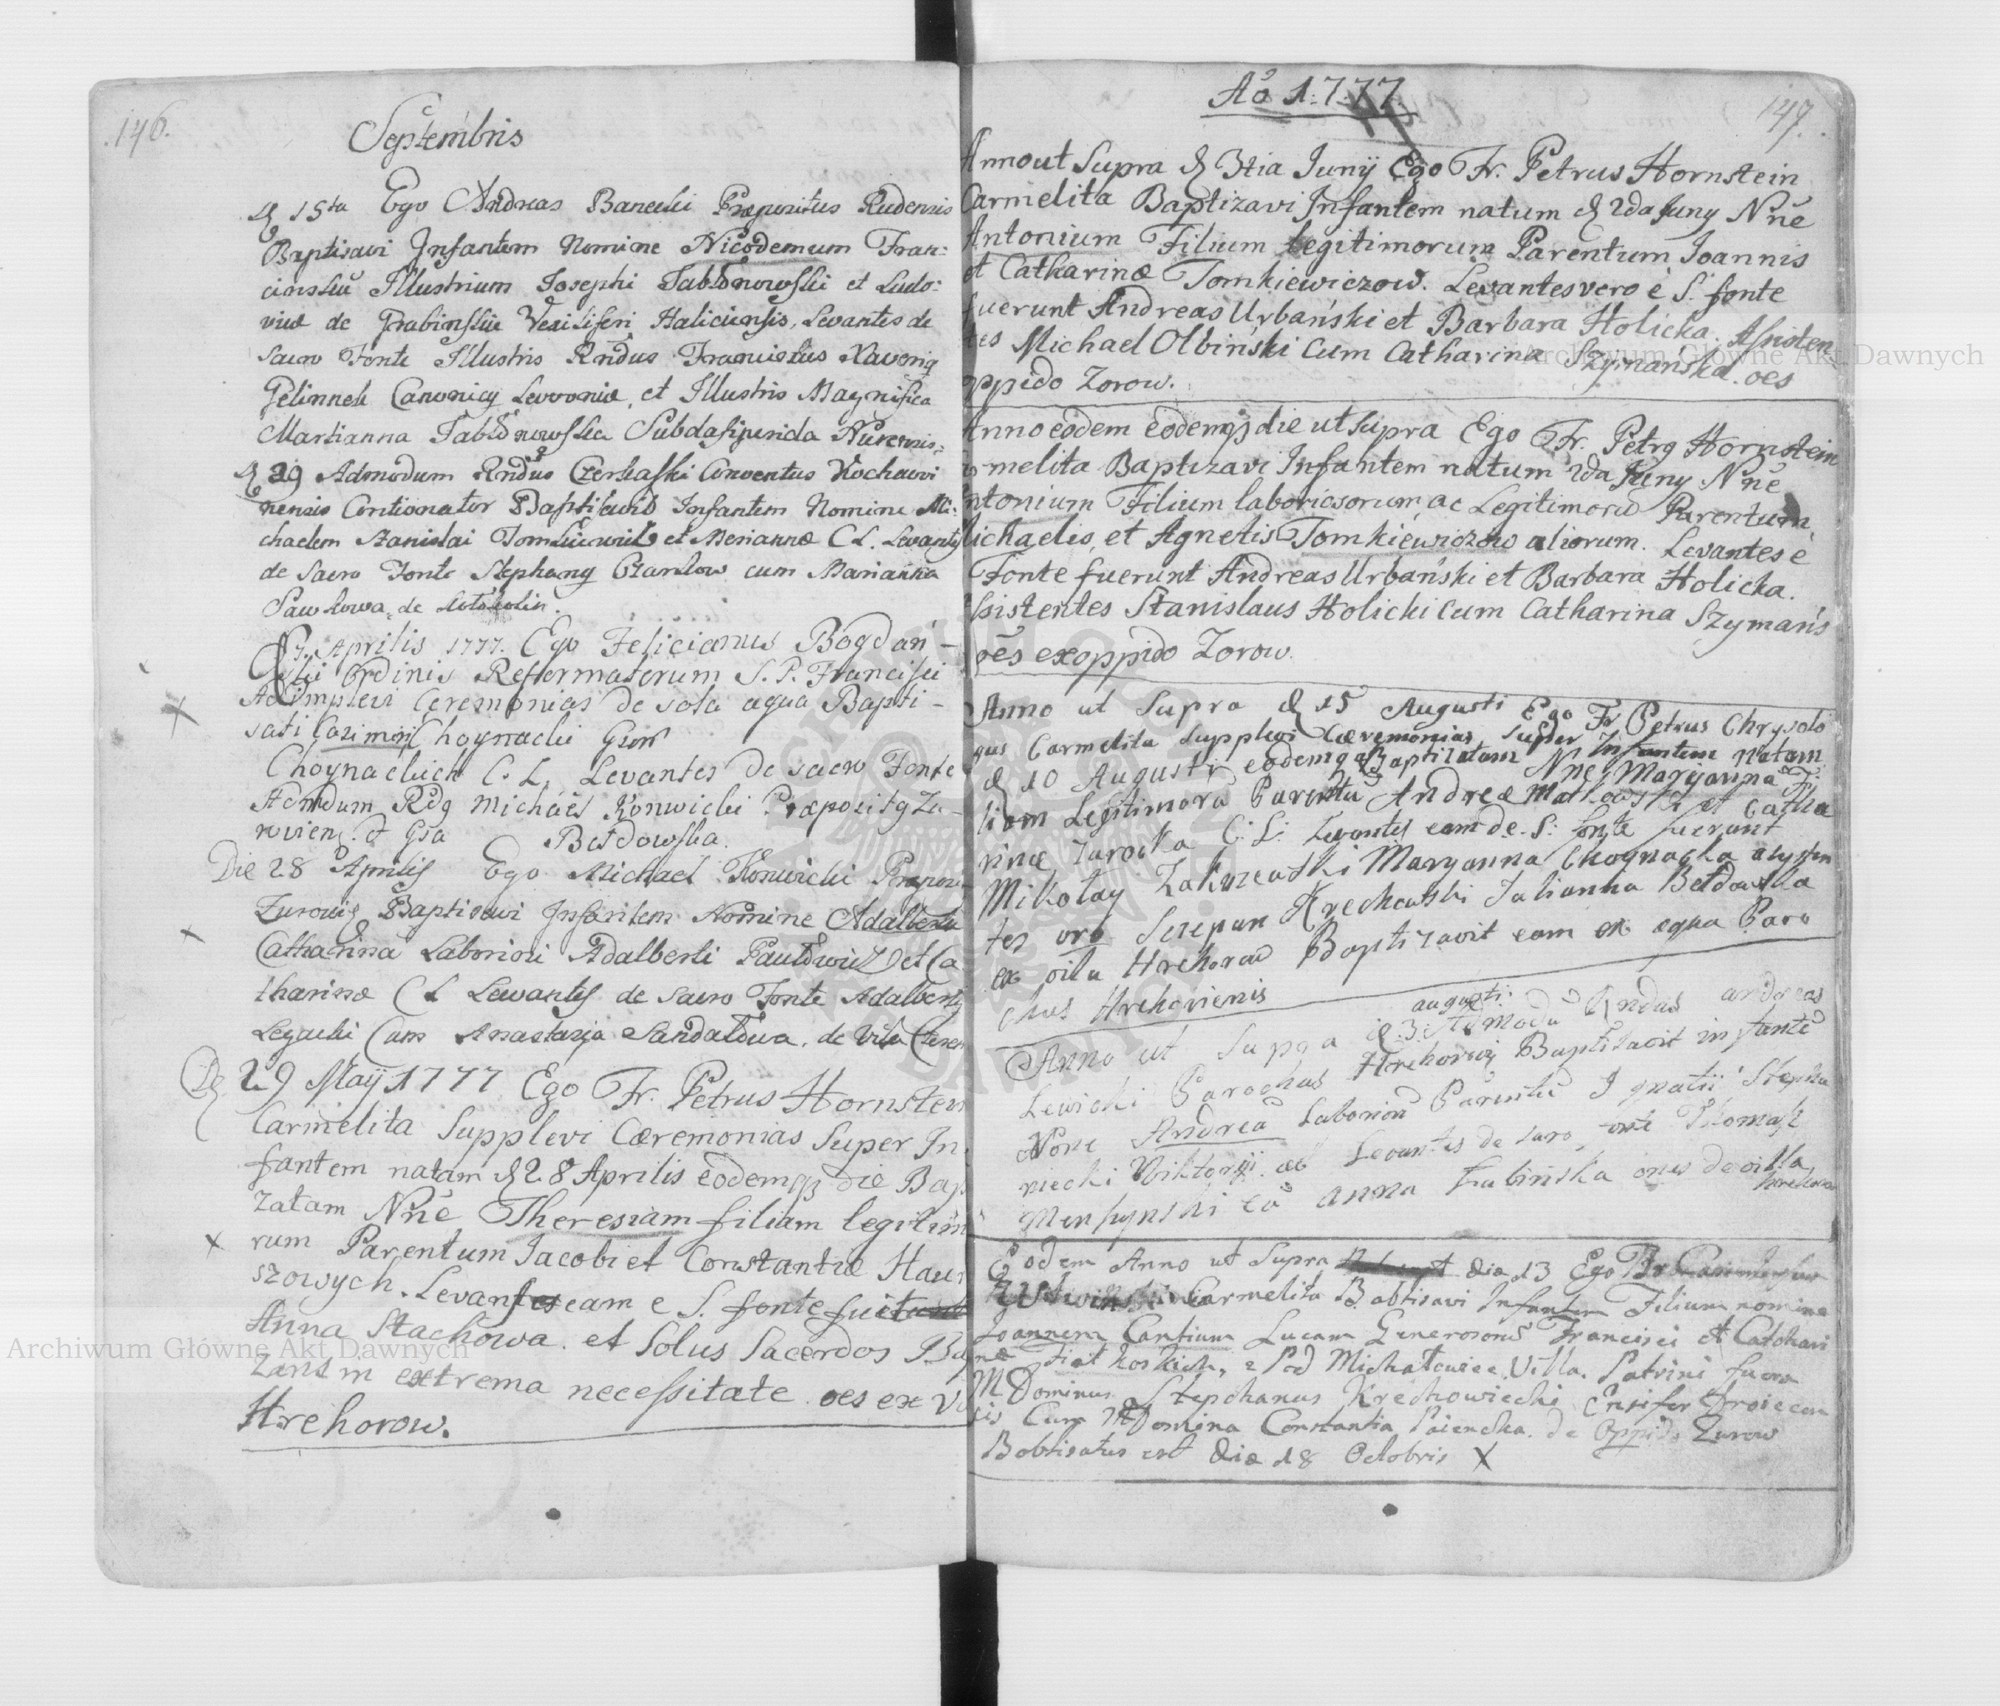 146.
Septembris
D 15ta Ego Andreas Banecki Præpositus Rudensis
Baptisavi Infantem Nomine Nicodemum Fran:
ciscum Illustrium Josephi Jabłonowski et Ludo:
vicæ de Grabinskie Vexiliferi Haliciensis, Levantes de
sacro Fonte Illustris Rndus Franciscus Xaverig
Gelinnek Canonicg Levoniæ, et Illustris Magnifica
Martianna Jabłonowska Subdapiferida Nurensis.
D 29 Admodum Rndus Czerkaski Conventus Kochawi
nensis Contionator Baptisavit Infantem Nomine Mi:
chaelem Stanislai Tomkiewicz et Mariannæ C L. Levantes
de Sacro Fonte Stephang Czarnow cum Marianna
Pawłowa, de
D 7. Aprilis 1777. Ego Felicianus Bogdań-
ski Ordinis Reformatorum S. P. Francisci
Adimplevi Ceremonias de sola aqua Bapti-
sati Cazimiri Choynacki Gsor
Choynackich C. L. Levantes de sacro Fonte
Admdum Rdg Michael Konwicki Præpositg Zu-
rovien. et Gsa Bełdowska.
Die 28 Aprilis Ego Michael Konwicki Præposi
Zuroviẽ Baptisavi Infantem Nomine Adalbertu
Catharina Laboriosi Adalberti Pawłowicz et Ca
tharinæ C L Levantes de Sacro Fonte Adalbertg
Legacki Cum Anastazja Sandałowa. de Villa Czeren
De 29 Maij 1777 Ego Fr. Petrus Hornstein
Carmelita Supplevi Cæremonias Super In
fantem natam D 28 Aprilis eodemq die Bap
zatam Nñe Theresiam filiam legitim
rum Parentum Jacobi et Constantiæ Haur
szowych. Levantes eam e S. fonte fuit
Anna Stachowa. et Solus Sacerdos Bap
zans in extrema necessitate. oes ex V
Hrehorow.
Aõ 1777.
147.
Anno ut Supra D 3tia Junij Ego Fr. Petrus Hornstein
Carmelita Baptizavi Infantem natum D 2da Juny Nñe
Antonium Filium legitimorum Parentum Joannis
et Catharinæ Tomkiewiczow. Levantes vero è S. fonte
fuerunt Andreas Urbański et Barbara Holicka. Assisten
tes Michael Olbiński Cum Catharina Szymańska. oes
oppido Zorow.
Anno eodem eodemq die ut supra Ego Fr. Petrg Hornstein
melita Baptizavi Infantem natum 2da Juny Nñe
ntonium Filium laboriosorum, ac Legitimorũ Parentum,
Michaelis, et Agnetis Tomkiewiczow aliorum. Levantes e
Fonte fuerunt Andreas Urbański et Barbara Holicka.
ssistentes Stanislaus Holicki cum Catharina Szymańs
oẽs ex oppido Zorow.
Anno ut Supra D 15 Augusti Ego Fr Petrus Chrysolo
gus Carmelita Supplevi Cæremonias Super Infantem Natam
D 10 Augusti eodemq Baptizatam Nñe Maryanna Fi
liam Legitimorũ Parentũ Andreæ Matkowski et Catha
rinæ Zurocka C: L: Levantes eam de. S: fonte fuerunt
Mikołay Zakrzewski Maryanna Choynacka asysten
tes vro Sczepan Krechowski Julianna Bełdowska
ex villa Hrehorow Baptizavit eam ex aqua Paro
chus Hrehoriensis
Anno ut Supra D 3 augusti Admodũ Rndus andreas
Lewicki Parochus Hrehoroviẽ Baptizavit infantẽ
Nõne Andrea Laboriosũ Parentũ Ignatii Stephu
niecki Wiktoryi et Levantes de sacro fonte Thomasz
Mensynski cũ anna Łubińska ones de villa
Hrehorow
Eodem Anno ut Supra die 13 Ego Br
Carmelita Babtisavi Infantem Filium nomine
Joannem Cantium Lucam Generosorũ Francisci et Cathari
næ z Pod Michałowiec Villa. Patrini fuere
M Dominus Stephanus Krechowiecki Ensifer
sis Cum M Domina Constantia de Oppido Zurow
Babtisatus est die 18 Octobris X
Archiwum Główne Akt Dawnych
Archiwum Główne Akt Dawnych